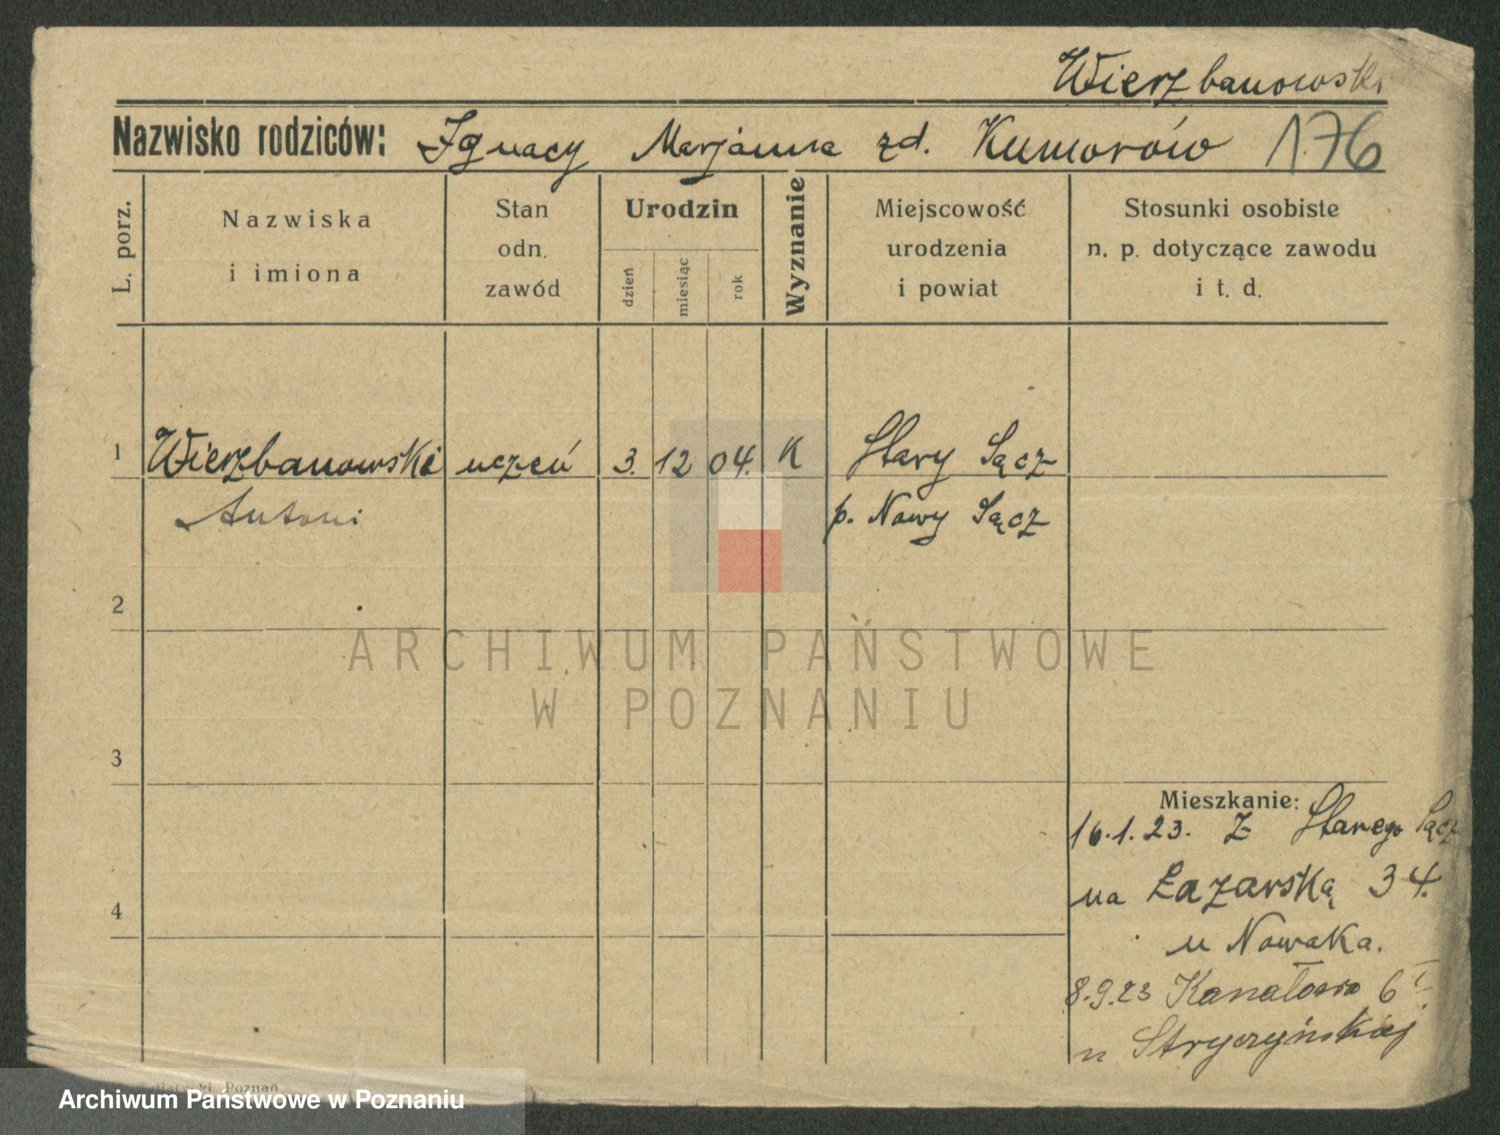 Wierzbanowski
Nazwisko rodziców: Ignacy Marjanna zd. Kumorów 176
L. porz.
Nazwiska i imiona
Stan odn. zawód
Urodzin
dzień miesiąc rok
Wyznanie
Miejscowość urodzenia i powiat
Stosunki osobiste n. p. dotyczące zawodu i t. d.
1 Wierzbanowski uczeń 3. 12 04. K Stary Sącz
Antoni p. Nowy Sącz
2
3
4
Mieszkanie:
16.1.23. Z Starego Sącz
na Łazarską 34.
u Nowaka.
8.9.23 Kanałowa 6 I.
u Stryczyńskiej
Poznań
ARCHIWUM PAŃSTWOWE
W POZNANIU
Archiwum Państwowe w Poznaniu